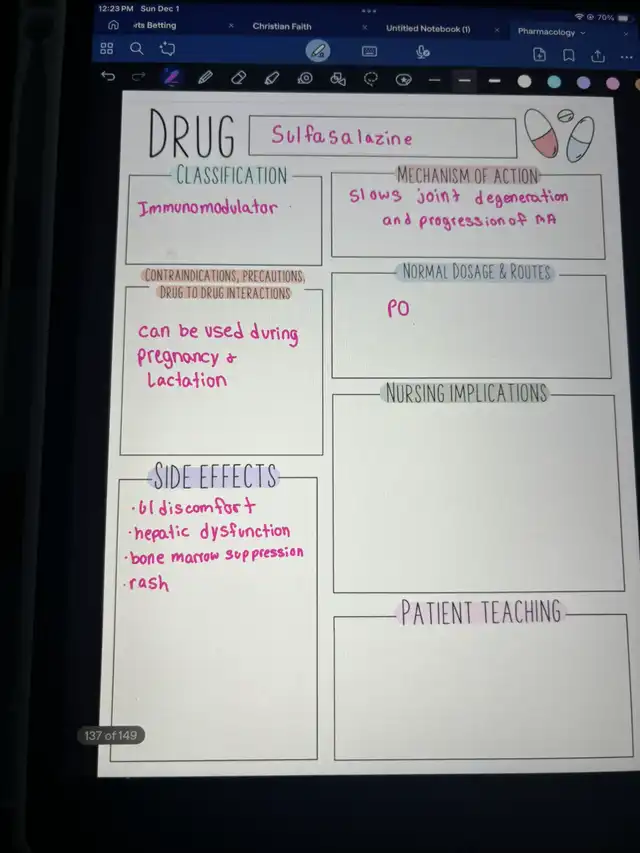 12:23 PM Sun Dec 1
70%
rts Betting
Christian Faith
Untitled Notebook (1)
Pharmacology
DRUG
Sulfasalazine
CLASSIFICATION
Immunomodulator
MECHANISM OF ACTION
Slows joint degeneration
and progression of RA
CONTRAINDICATIONS, PRECAUTIONS,
DRUG TO DRUG INTERACTIONS
can be used during
pregnancy &
lactation
NORMAL DOSAGE & ROUTES
PO
NURSING IMPLICATIONS
SIDE EFFECTS
• GI discomfort
• hepatic dysfunction
• bone marrow suppression
• rash
PATIENT TEACHING
137 of 149